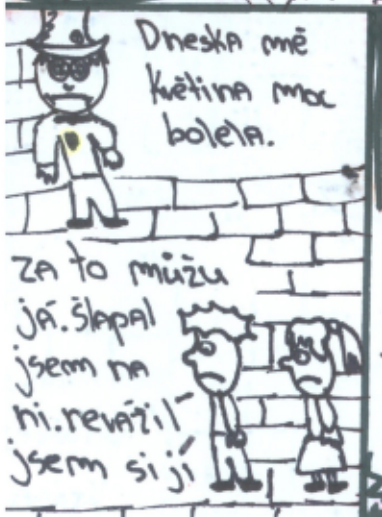 Dneska mě
květina moc
bolela.
za to můžu
já. šlapal
jsem na
ni. nevážil
jsem si jí